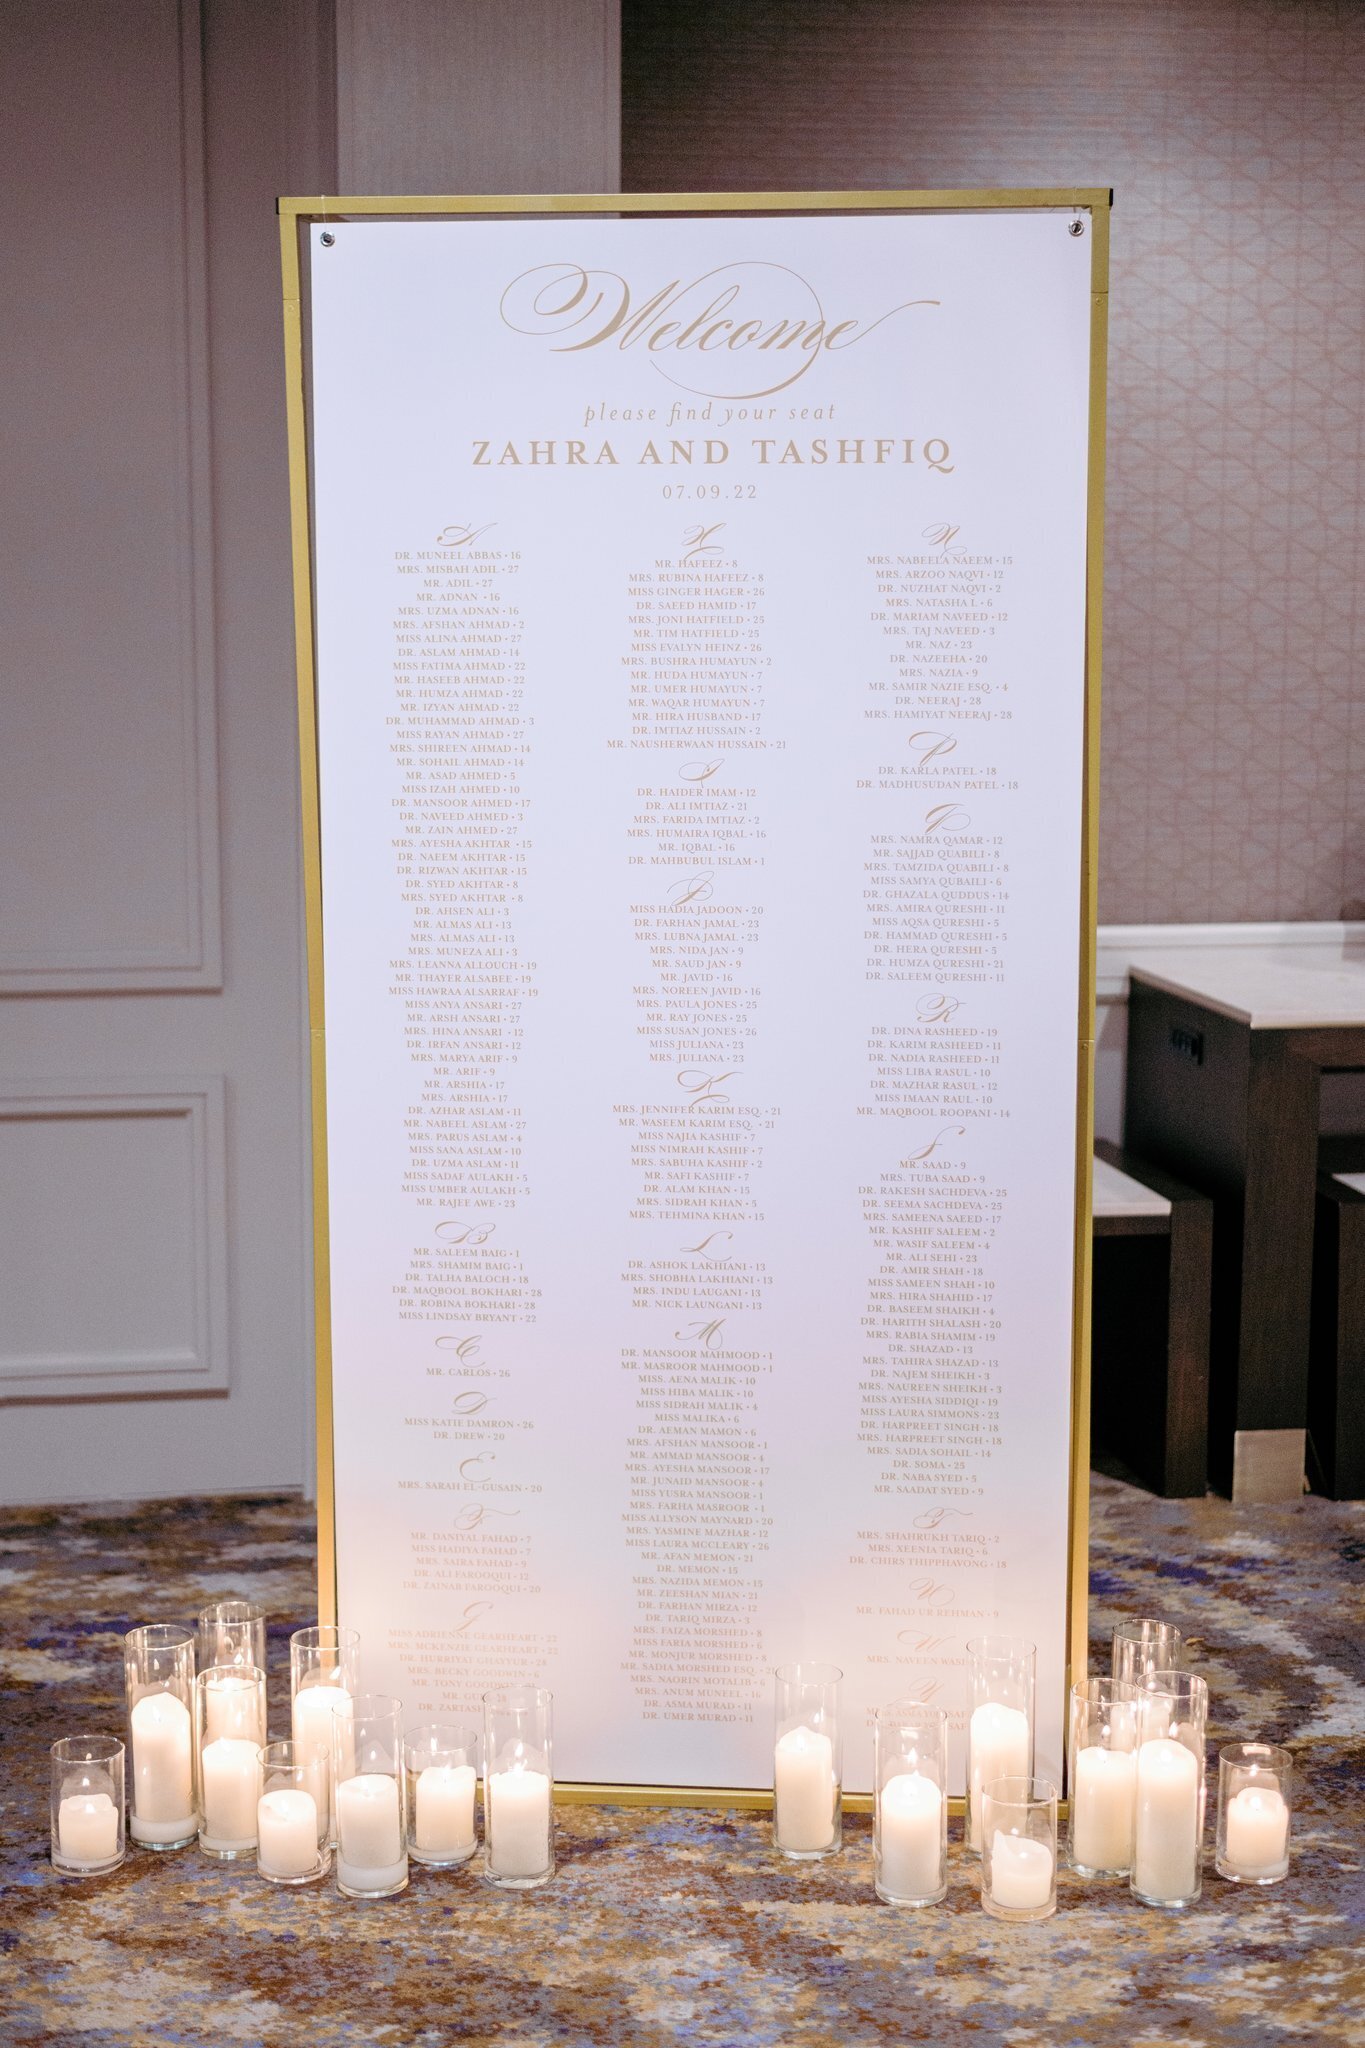 Welcome
please find your seat
ZAHRA AND TASHFIQ
07.09.22
A
DR. MUNEEL ABBAS • 16
MRS. MISBAH ADIL • 27
MR. ADIL • 27
MR. ADNAN • 16
MRS. UZMA ADNAN • 16
MRS. AFSHAN AHMAD • 2
MISS ALINA AHMAD • 27
DR. ASLAM AHMAD • 14
MISS FATIMA AHMAD • 22
MR. HASEEB AHMAD • 22
MR. HUMZA AHMAD • 22
MR. IZYAN AHMAD • 22
DR. MUHAMMAD AHMAD • 3
MISS RAYAN AHMAD • 27
MRS. SHIREEN AHMAD • 14
MR. SOHAIL AHMAD • 14
MR. ASAD AHMED • 5
MISS IZAH AHMED • 10
DR. MANSOOR AHMED • 17
DR. NAVEED AHMED • 3
MR. ZAIN AHMED • 27
MRS. AYESHA AKHTAR • 15
DR. NAEEM AKHTAR • 15
DR. RIZWAN AKHTAR • 15
DR. SYED AKHTAR • 8
MRS. SYED AKHTAR • 8
DR. AHSEN ALI • 3
MR. ALMAS ALI • 13
MRS. ALMAS ALI • 13
MRS. MUNEZA ALI • 3
MRS. LEANNA ALLOUCH • 19
MR. THAYER ALSABEE • 19
MISS HAWRAA ALSARRAF • 19
MISS ANYA ANSARI • 27
MR. ARSH ANSARI • 27
MRS. HINA ANSARI • 12
DR. IRFAN ANSARI • 12
MRS. MARYA ARIF • 9
MR. ARIF • 9
MR. ARSHIA • 17
MRS. ARSHIA • 17
DR. AZHAR ASLAM • 11
MR. NABEEL ASLAM • 27
MRS. PARUS ASLAM • 4
MISS SANA ASLAM • 10
DR. UZMA ASLAM • 11
MISS SADAF AULAKH • 5
MISS UMBER AULAKH • 5
MR. RAJEE AWE • 23
B
MR. SALEEM BAIG • 1
MRS. SHAMIM BAIG • 1
DR. TALHA BALOCH • 18
DR. MAQBOOL BOKHARI • 28
DR. ROBINA BOKHARI • 28
MISS LINDSAY BRYANT • 22
C
MR. CARLOS • 26
D
MISS KATIE DAMRON • 26
DR. DREW • 20
E
MRS. SARAH EL-GUSAIN • 20
F
MR. DANIYAL FAHAD • 7
MISS HADIYA FAHAD • 7
MRS. SAIRA FAHAD • 9
DR. ALI FAROOQUI • 12
DR. ZAINAB FAROOQUI • 20
G
MISS ADRIENNE GEARHEART • 22
MRS. MCKENZIE GEARHEART • 22
DR. HURRIYAT GHAYYUR • 28
MRS. BECKY GOODWIN • 6
MR. TONY GOODWIN
MR.
DR.
H
MR. HAFEEZ • 8
MRS. RUBINA HAFEEZ • 8
MISS GINGER HAGER • 26
DR. SAEED HAMID • 17
MRS. JONI HATFIELD • 25
MR. TIM HATFIELD • 25
MISS EVALYN HEINZ • 26
MRS. BUSHRA HUMAYUN • 2
MR. HUDA HUMAYUN • 7
MR. UMER HUMAYUN • 7
MR. WAQAR HUMAYUN • 7
MR. HIRA HUSBAND • 17
DR. IMTIAZ HUSSAIN • 2
MR. NAUSHERWAAN HUSSAIN • 21
I
DR. HAIDER IMAM • 12
DR. ALI IMTIAZ • 21
MRS. FARIDA IMTIAZ • 2
MRS. HUMAIRA IQBAL • 16
MR. IQBAL • 16
DR. MAHBUBUL ISLAM • 1
J
MISS HADIA JADOON • 20
DR. FARHAN JAMAL • 23
MRS. LUBNA JAMAL • 23
MRS. NIDA JAN • 9
MR. SAUD JAN • 9
MR. JAVID • 16
MRS. NOREEN JAVID • 16
MRS. PAULA JONES • 25
MR. RAY JONES • 25
MISS SUSAN JONES • 26
MISS JULIANA • 23
MRS. JULIANA • 23
K
MRS. JENNIFER KARIM ESQ. • 21
MR. WASEEM KARIM ESQ. • 21
MISS NAJIA KASHIF • 7
MISS NIMRAH KASHIF • 7
MRS. SABUHA KASHIF • 2
MR. SAFI KASHIF • 7
DR. ALAM KHAN • 15
MRS. SIDRAH KHAN • 5
MRS. TEHMINA KHAN • 15
L
DR. ASHOK LAKHIANI • 13
MRS. SHOBHA LAKHIANI • 13
MRS. INDU LAUGANI • 13
MR. NICK LAUNGANI • 13
M
DR. MANSOOR MAHMOOD • 1
MR. MASROOR MAHMOOD • 1
MISS. AENA MALIK • 10
MISS HIBA MALIK • 10
MISS SIDRAH MALIK • 4
MISS MALIKA • 6
DR. AEMAN MAMON • 6
MRS. AFSHAN MANSOOR • 1
MR. AMMAD MANSOOR • 4
MRS. AYESHA MANSOOR • 17
MR. JUNAID MANSOOR • 4
MISS YUSRA MANSOOR • 1
MRS. FARHA MASROOR • 1
MISS ALLYSON MAYNARD • 20
MRS. YASMINE MAZHAR • 12
MISS LAURA MCCLEARY • 26
MR. AFAN MEMON • 21
DR. MEMON • 15
MRS. NAZIDA MEMON • 15
MR. ZEESHAN MIAN • 21
DR. FARHAN MIRZA • 12
DR. TARIQ MIRZA • 3
MRS. FAIZA MORSHED • 8
MISS FARIA MORSHED • 6
MR. MONJUR MORSHED • 8
MR. SADIA MORSHED ESQ. •
MRS. NAORIN MOTALIB • 6
MRS. ANUM MUNEEL • 16
DR. ASMA MURAD • 11
DR. UMER MURAD • 11
N
MRS. NABEELA NAEEM • 15
MRS. ARZOO NAQVI • 12
DR. NUZHAT NAQVI • 2
MRS. NATASHA L • 6
DR. MARIAM NAVEED • 12
MRS. TAJ NAVEED • 3
MR. NAZ • 23
DR. NAZEEHA • 20
MRS. NAZIA • 9
MR. SAMIR NAZIE ESQ. • 4
DR. NEERAJ • 28
MRS. HAMIYAT NEERAJ • 28
P
DR. KARLA PATEL • 18
DR. MADHUSUDAN PATEL • 18
Q
MRS. NAMRA QAMAR • 12
MR. SAJJAD QUABILI • 8
MRS. TAMZIDA QUABILI • 8
MISS SAMYA QUBAILI • 6
DR. GHAZALA QUDDUS • 14
MRS. AMIRA QURESHI • 11
MISS AQSA QURESHI • 5
DR. HAMMAD QURESHI • 5
DR. HERA QURESHI • 5
DR. HUMZA QURESHI • 21
DR. SALEEM QURESHI • 11
R
DR. DINA RASHEED • 19
DR. KARIM RASHEED • 11
DR. NADIA RASHEED • 11
MISS LIBA RASUL • 10
DR. MAZHAR RASUL • 12
MISS IMAAN RAUL • 10
MR. MAQBOOL ROOPANI • 14
S
MR. SAAD • 9
MRS. TUBA SAAD • 9
DR. RAKESH SACHDEVA • 25
DR. SEEMA SACHDEVA • 25
MRS. SAMEENA SAEED • 17
MR. KASHIF SALEEM • 2
MR. WASIF SALEEM • 4
MR. ALI SEHI • 23
DR. AMIR SHAH • 18
MISS SAMEEN SHAH • 10
MRS. HIRA SHAHID • 17
DR. BASEEM SHAIKH • 4
DR. HARITH SHALASH • 20
MRS. RABIA SHAMIM • 19
DR. SHAZAD • 13
MRS. TAHIRA SHAZAD • 13
DR. NAJEM SHEIKH • 3
MRS. NAUREEN SHEIKH • 3
MISS AYESHA SIDDIQI • 19
MISS LAURA SIMMONS • 23
DR. HARPREET SINGH • 18
MRS. HARPREET SINGH • 18
MRS. SADIA SOHAIL • 14
DR. SOMA • 25
DR. NABA SYED • 5
MR. SAADAT SYED • 9
T
MRS. SHAHRUKH TARIQ • 2
MRS. XEENIA TARIQ • 6
DR. CHIRS THIPPHAVONG • 18
U
MR. FAHAD UR REHMAN • 9
W
MRS. NAVEEN
Y